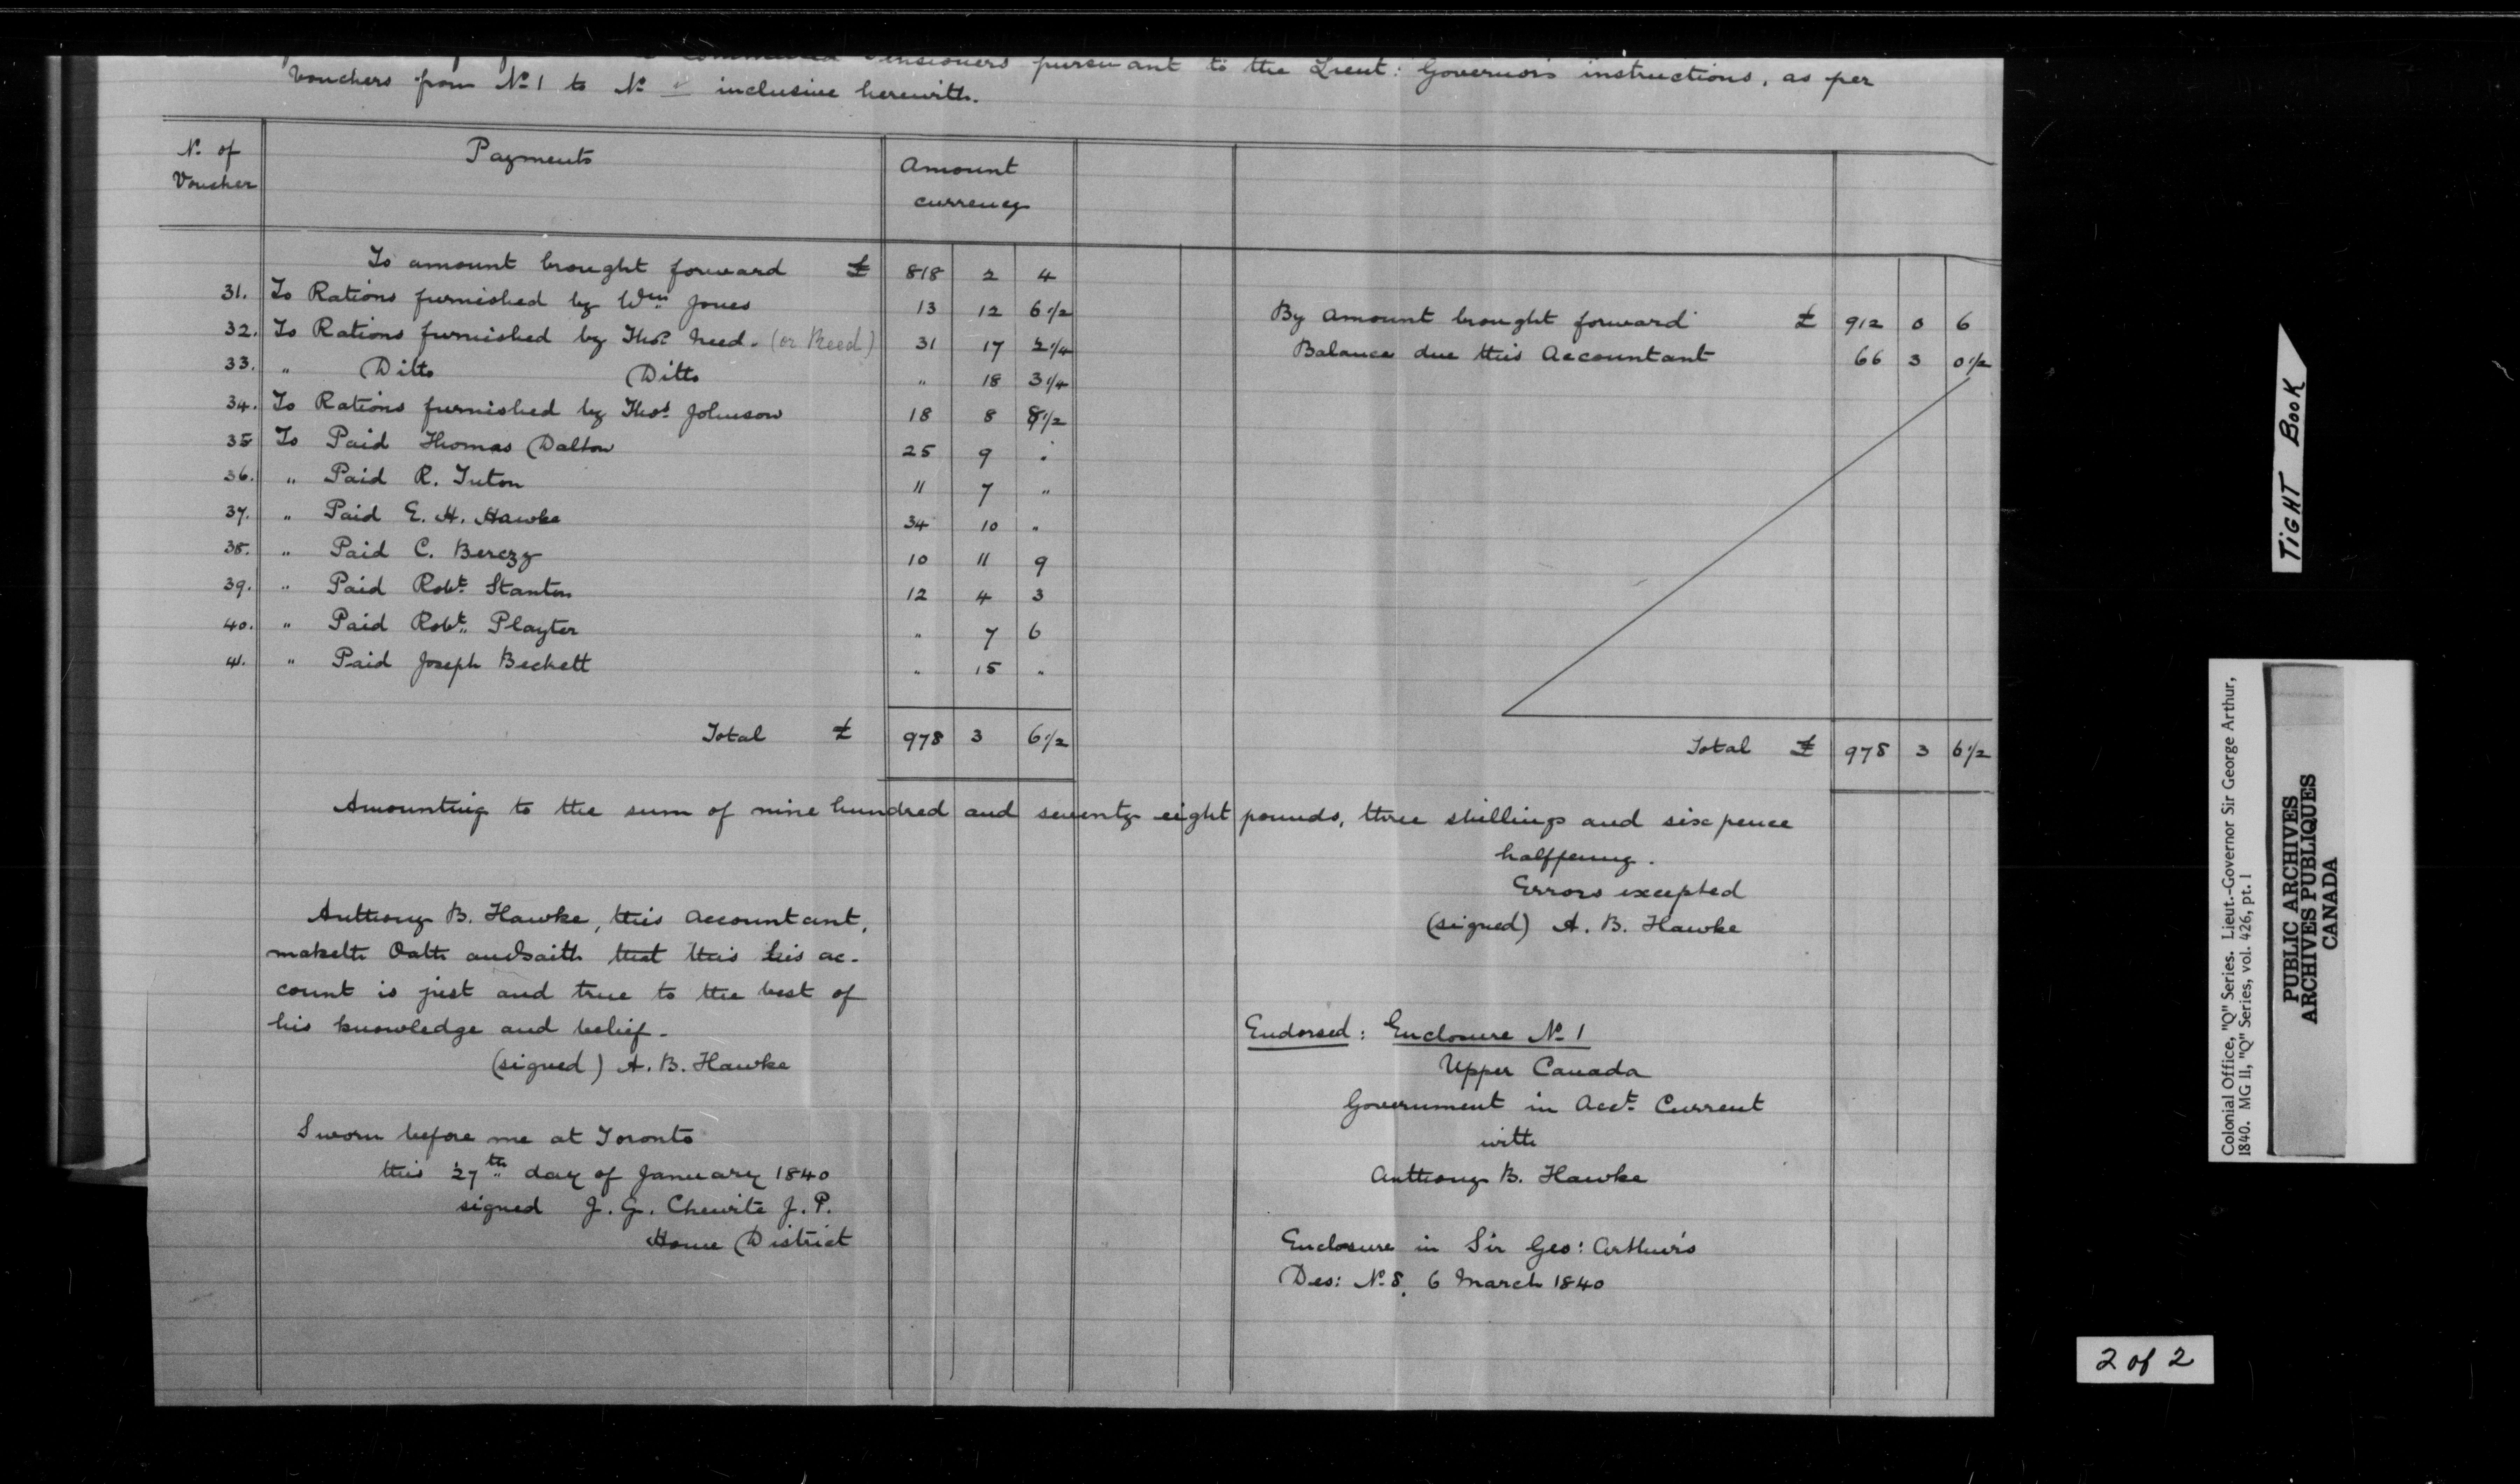 Commuted Pensioners pursuant to the Lieut: Governor's instructions, as per
Vouchers from No. 1 to No. inclusive herewith.
No. of Voucher | Payments | Amount currency
To amount brought forward £ 818 2 4
31. To Rations furnished by Wm. Jones 13 12 6 1/2
32. To Rations furnished by Thos. Need. (or Reed) 31 17 2 1/4
33. " Ditto Ditto " 18 3 1/4
34. To Rations furnished by Thos. Johnson 18 8 8 1/2
35 To Paid Thomas Dalton 25 9 "
36. " Paid R. Tuton 11 7 "
37. " Paid E. H. Hawke 34 10 "
38. " Paid C. Berczy 10 11 9
39. " Paid Robt. Stanton 12 4 3
40. " Paid Robt. Playter " 7 6
41. " Paid Joseph Beckett " 15 "
Total £ 978 3 6 1/2
By Amount brought forward £ 912 0 6
Balance due this Accountant 66 3 0 1/2
Total £ 978 3 6 1/2
Amounting to the sum of nine hundred and seventy eight pounds, three shillings and six pence
halfpenny.
Errors excepted
(signed) A. B. Hawke
Anthony B. Hawke, this Accountant,
maketh Oath and saith that this his ac-
count is just and true to the best of
his knowledge and belief-
(signed) A. B. Hawke
Sworn before me at Toronto
this 27th day of January 1840
signed J. G. Chewite J. P.
Home District
Endorsed: Enclosure No. 1
Upper Canada
Government in Acct. Current
with
Anthony B. Hawke
Enclosure in Sir Geo: Arthur's
Des: No. 8. 6 March 1840
TIGHT BOOK
Colonial Office, "Q" Series. Lieut.-Governor Sir George Arthur,
1840. MG 11, "Q" Series, vol. 426, pt. 1
PUBLIC ARCHIVES
ARCHIVES PUBLIQUES
CANADA
2 of 2